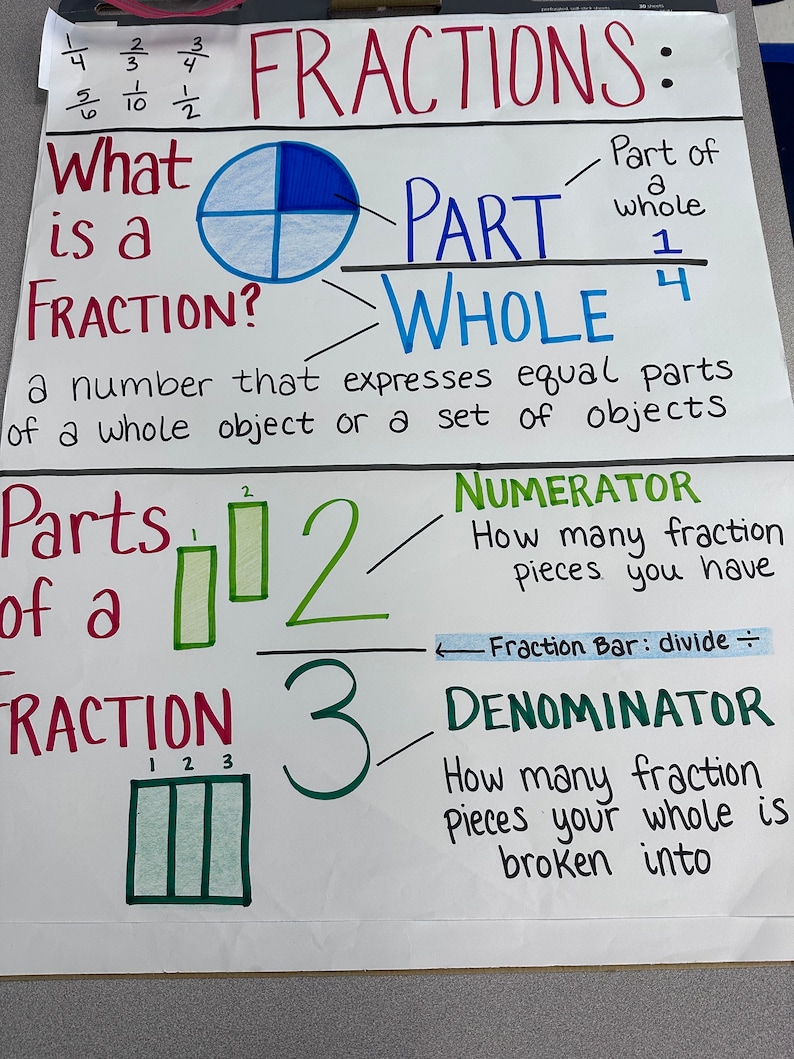 perforated, self-stick sheets
30 sheets
1/4 2/3 3/4
5/6 1/10 1/2
FRACTIONS:
What
is a
FRACTION?
PART
WHOLE
Part of
a
whole
1
4
a number that expresses equal parts
of a whole object or a set of objects
Parts
of a
FRACTION
1
2
2
3
NUMERATOR
How many fraction
pieces you have
← Fraction Bar: divide ÷
DENOMINATOR
How many fraction
pieces your whole is
broken into
1 2 3